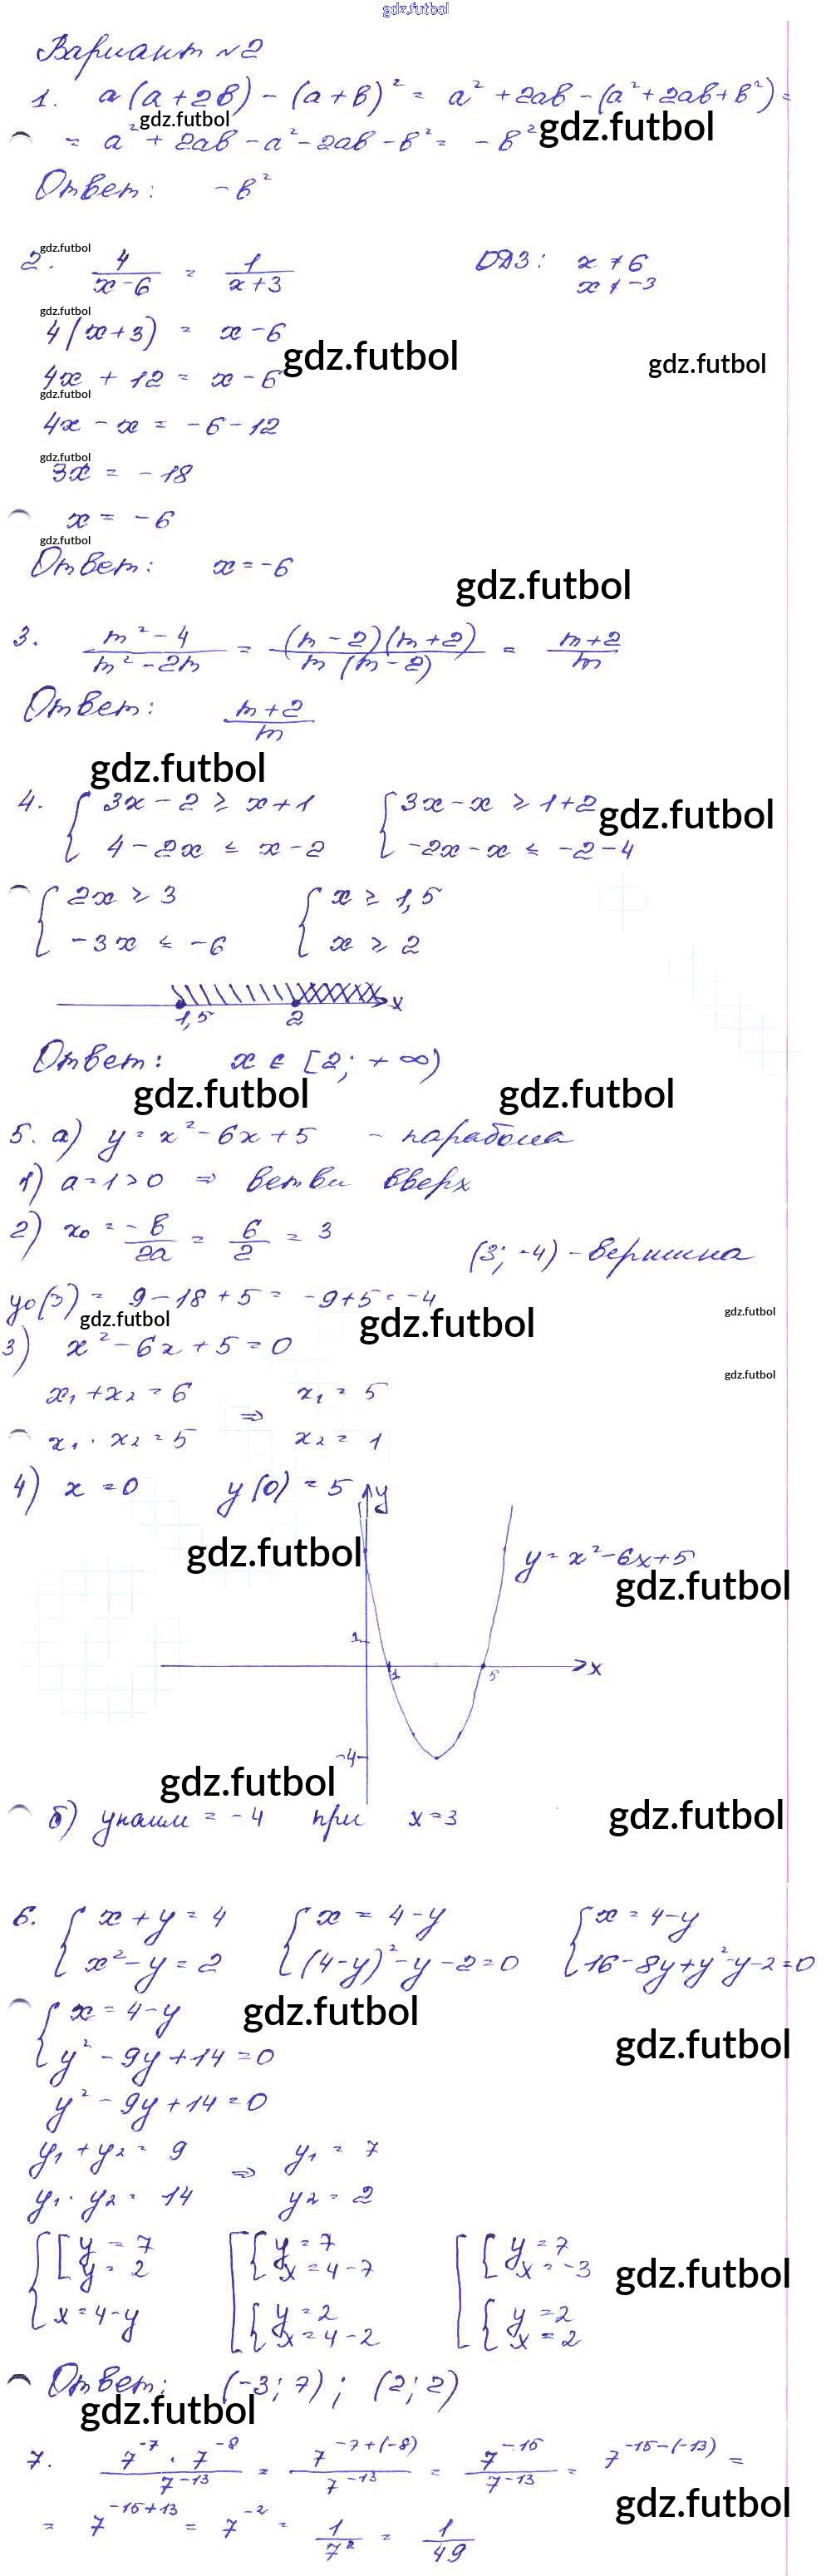 gdz.futbol
Вариант №2
1. a(a+2b) - (a+b)² = a² + 2ab - (a² + 2ab + b²) =
gdz.futbol
= a² + 2ab - a² - 2ab - b² = - b² gdz.futbol
Ответ: - b²
gdz.futbol
2. 4/(x-6) = 1/(x+3) ОДЗ: x ≠ 6
x ≠ -3
gdz.futbol
4(x+3) = x-6
gdz.futbol gdz.futbol
4x + 12 = x - 6
gdz.futbol
4x - x = -6 - 12
gdz.futbol
3x = -18
x = -6
gdz.futbol
Ответ: x = -6
gdz.futbol
3. (m² - 4)/(m² - 2m) = (m-2)(m+2)/(m(m-2)) = (m+2)/m
Ответ: (m+2)/m
gdz.futbol
4. { 3x - 2 ≥ x+1 { 3x - x ≥ 1+2 gdz.futbol
4 - 2x ≤ x - 2 -2x - x ≤ -2 - 4
{ 2x ≥ 3 { x ≥ 1,5
-3x ≤ -6 x ≥ 2
x
1,5 2
Ответ: x ∈ [2; +∞)
gdz.futbol gdz.futbol
5. а) y = x² - 6x + 5 - парабола
1) a = 1 > 0 ⇒ ветви вверх
2) x₀ = -b/2a = 6/2 = 3
(3; -4) - вершина
y₀(3) = 9 - 18 + 5 = -9 + 5 = -4
gdz.futbol gdz.futbol gdz.futbol
3) x² - 6x + 5 = 0
gdz.futbol
x₁ + x₂ = 6 ⇒ x₁ = 5
x₁ · x₂ = 5 x₂ = 1
4) x = 0 y(0) = 5 y
gdz.futbol
y = x² - 6x + 5
gdz.futbol
1
1 5 x
-4
gdz.futbol
б) yнаим = -4 при x = 3 gdz.futbol
6. { x + y = 4 { x = 4 - y { x = 4 - y
x² - y = 2 (4-y)² - y - 2 = 0 16 - 8y + y² - y - 2 = 0
{ x = 4 - y gdz.futbol
gdz.futbol
y² - 9y + 14 = 0
y² - 9y + 14 = 0
y₁ + y₂ = 9 ⇒ y₁ = 7
y₁ · y₂ = 14 y₂ = 2
{ [ y = 7 [ { y = 7 [ { y = 7
y = 2 x = 4 - 7 x = -3 gdz.futbol
x = 4 - y { y = 2 { y = 2
x = 4 - 2 x = 2
Ответ: (-3; 7); (2; 2)
gdz.futbol
7. (7⁻⁷ · 7⁻⁸)/7⁻¹³ = 7⁻⁷⁺⁽⁻⁸⁾/7⁻¹³ = 7⁻¹⁵/7⁻¹³ = 7⁻¹⁵⁻⁽⁻¹³⁾ =
gdz.futbol
= 7⁻¹⁵⁺¹³ = 7⁻² = 1/7² = 1/49